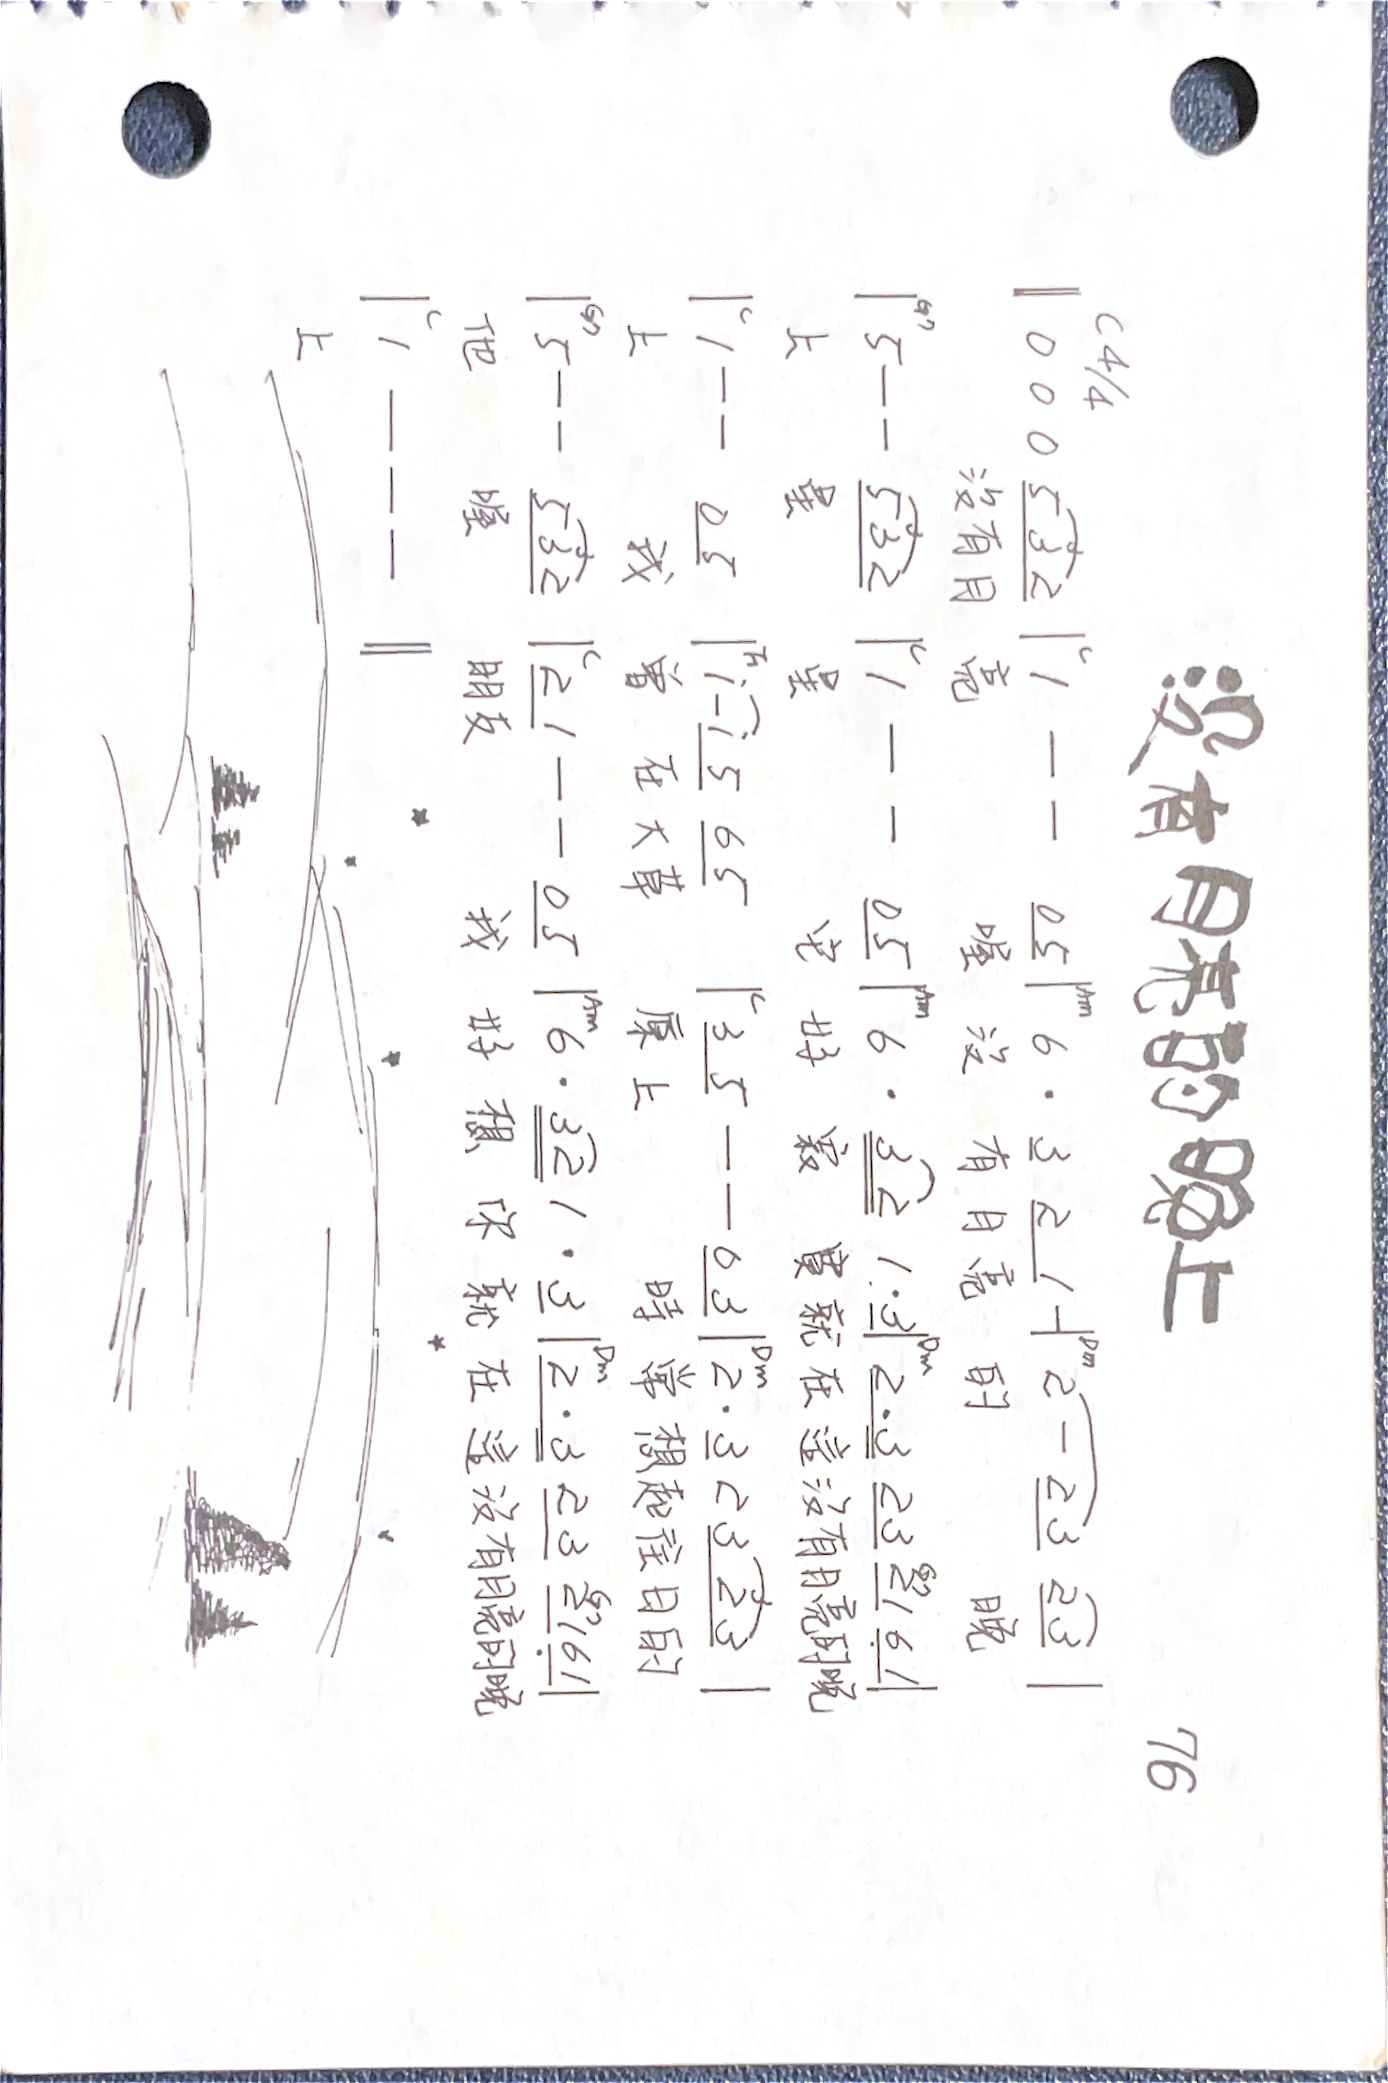 没有月亮的晚上
76
C 4/4
‖ 0 0 0 5 3 2 | C 1 — — 0 5 | Am 6 · 3 2 1 — | Dm 2 — 2 3 2 3 |
沒有月 亮 喔 沒 有月亮 的 晚
| G7 5 — — 5 3 2 | C 1 — — 0 5 | Am 6 · 3 2 1 · 3 | Dm 2 · 3 2 3 G7 2 1 6 1 |
上 星 星 它 好 寂 寞就在這沒有月亮的晚
| C 1 — — 0 5 | F i — i 5 6 5 | C 3 5 — — 0 3 | Dm 2 · 3 2 3 2 3 |
上 我 曾 在大草 原上 時常想起往日的
| G7 5 — — 5 3 2 | C 2 1 — — 0 5 | Am 6 · 3 2 1 · 3 | Dm 2 · 3 2 3 G7 2 1 6 1 |
他 喔 朋友 我 好 想 你 就在這沒有月亮的晚
| C 1 — — — ‖
上